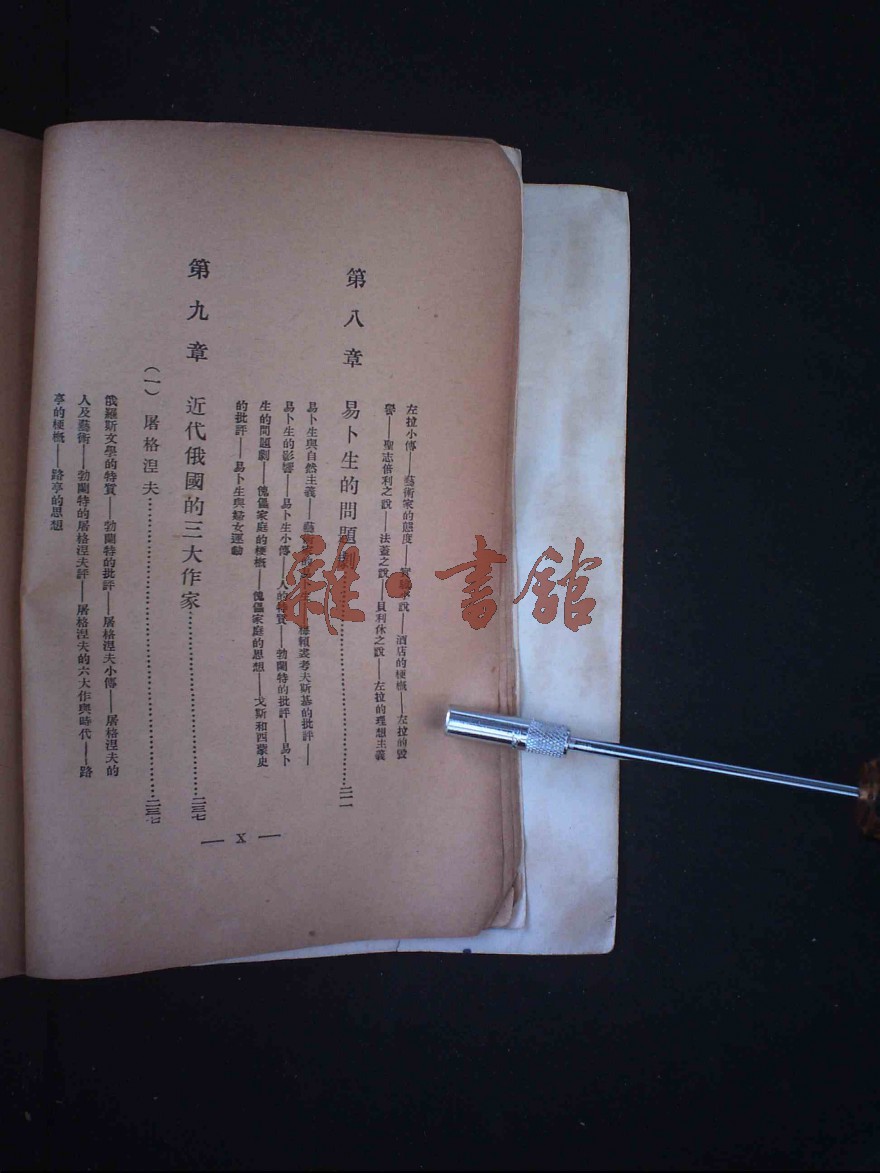 左拉小傳——藝術家的態度——實驗小說——酒店的梗概——左拉的毀
譽——聖志倍利之說——法蓋之說——貝利休之說——左拉的理想主義
第八章 易卜生的問題劇……二一一
易卜生與自然主義——藝術 考夫斯基的批評——
易卜生的影響——易卜生小傳——人的特質——勃蘭特的批評——易卜
生的問題劇——傀儡家庭的梗概——傀儡家庭的思想——戈斯和西蒙史
的批評——易卜生與婦女運動
第九章 近代俄國的三大作家……二三七
（一）屠格涅夫……二三七
俄羅斯文學的特質——勃蘭特的批評——屠格涅夫小傳——屠格涅夫的
人及藝術——勃蘭特的屠格涅夫評——屠格涅夫的六大作與時代——路
亭的梗概——路亭的思想
— X —
雜·書舘